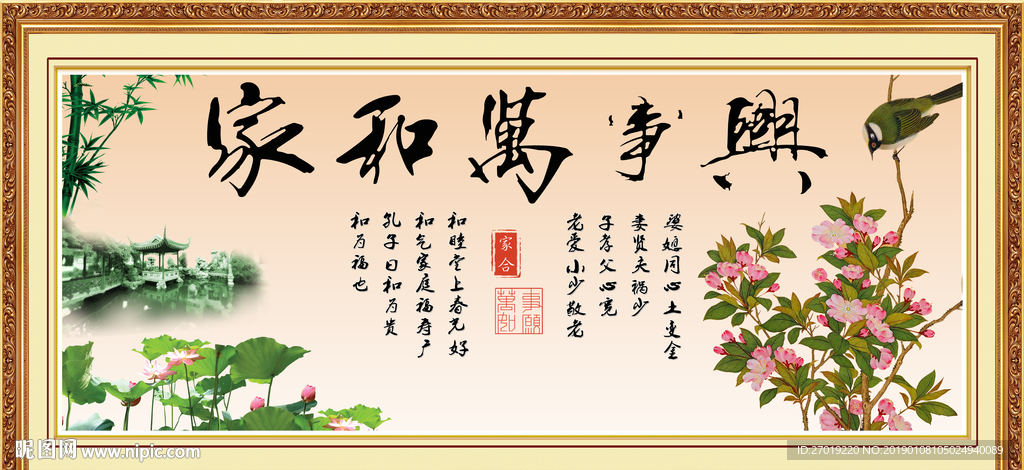 家和萬事興
婆媳同心土变金
妻贤夫祸少
子孝父心宽
老爱小少敬老
家合
萬事
如願
和睦堂上春光好
和气家庭福寿广
孔子曰和为贵
和为福也
昵图网 www.nipic.com
ID:27019220 NO:20190108105024940089